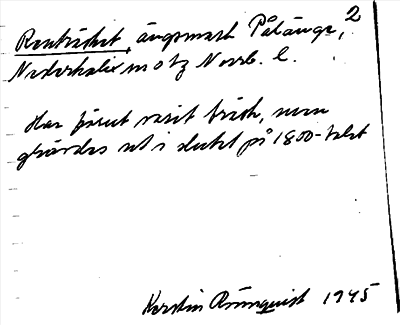 2
Renträsket, ängsmark Pålänge,
Nederkalix sn o tg Norrb. l.
Har förut varit träsk, men
gjordes ut i slutet på 1800-talet
Kerstin Rönnquist 1945